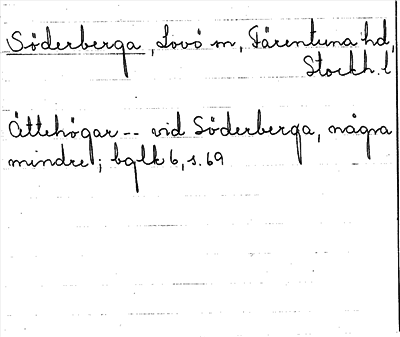 Söderberga, Lovö sn, Färentuna hd,
Stockh. l
Ättehögar -- vid Söderberga, några
mindre; bglk 6, s. 69